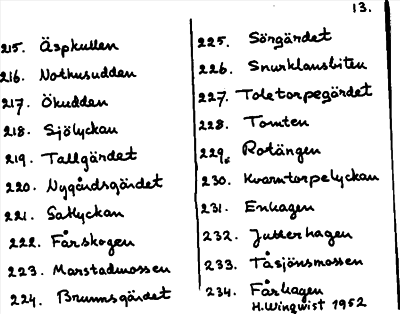 13.
215. Äspkullen
216. Nothusudden
217. Ökudden
218. Sjölyckan
219. Tallgärdet
220. Nygårdsgärdet
221. Satlyckan
222. Fårskogen
223. Marstadmossen
224. Brunnsgärdet
225. Sörgärdet
226. Snurklansbiten
227. Toletorpegärdet
228. Tomten
229. Rotängen
230. Kvarntorpelyckan
231. Enhagen
232. Jutterhagen
233. Tåsjönsmossen
234. Fårhagen
H. Wingwist 1952